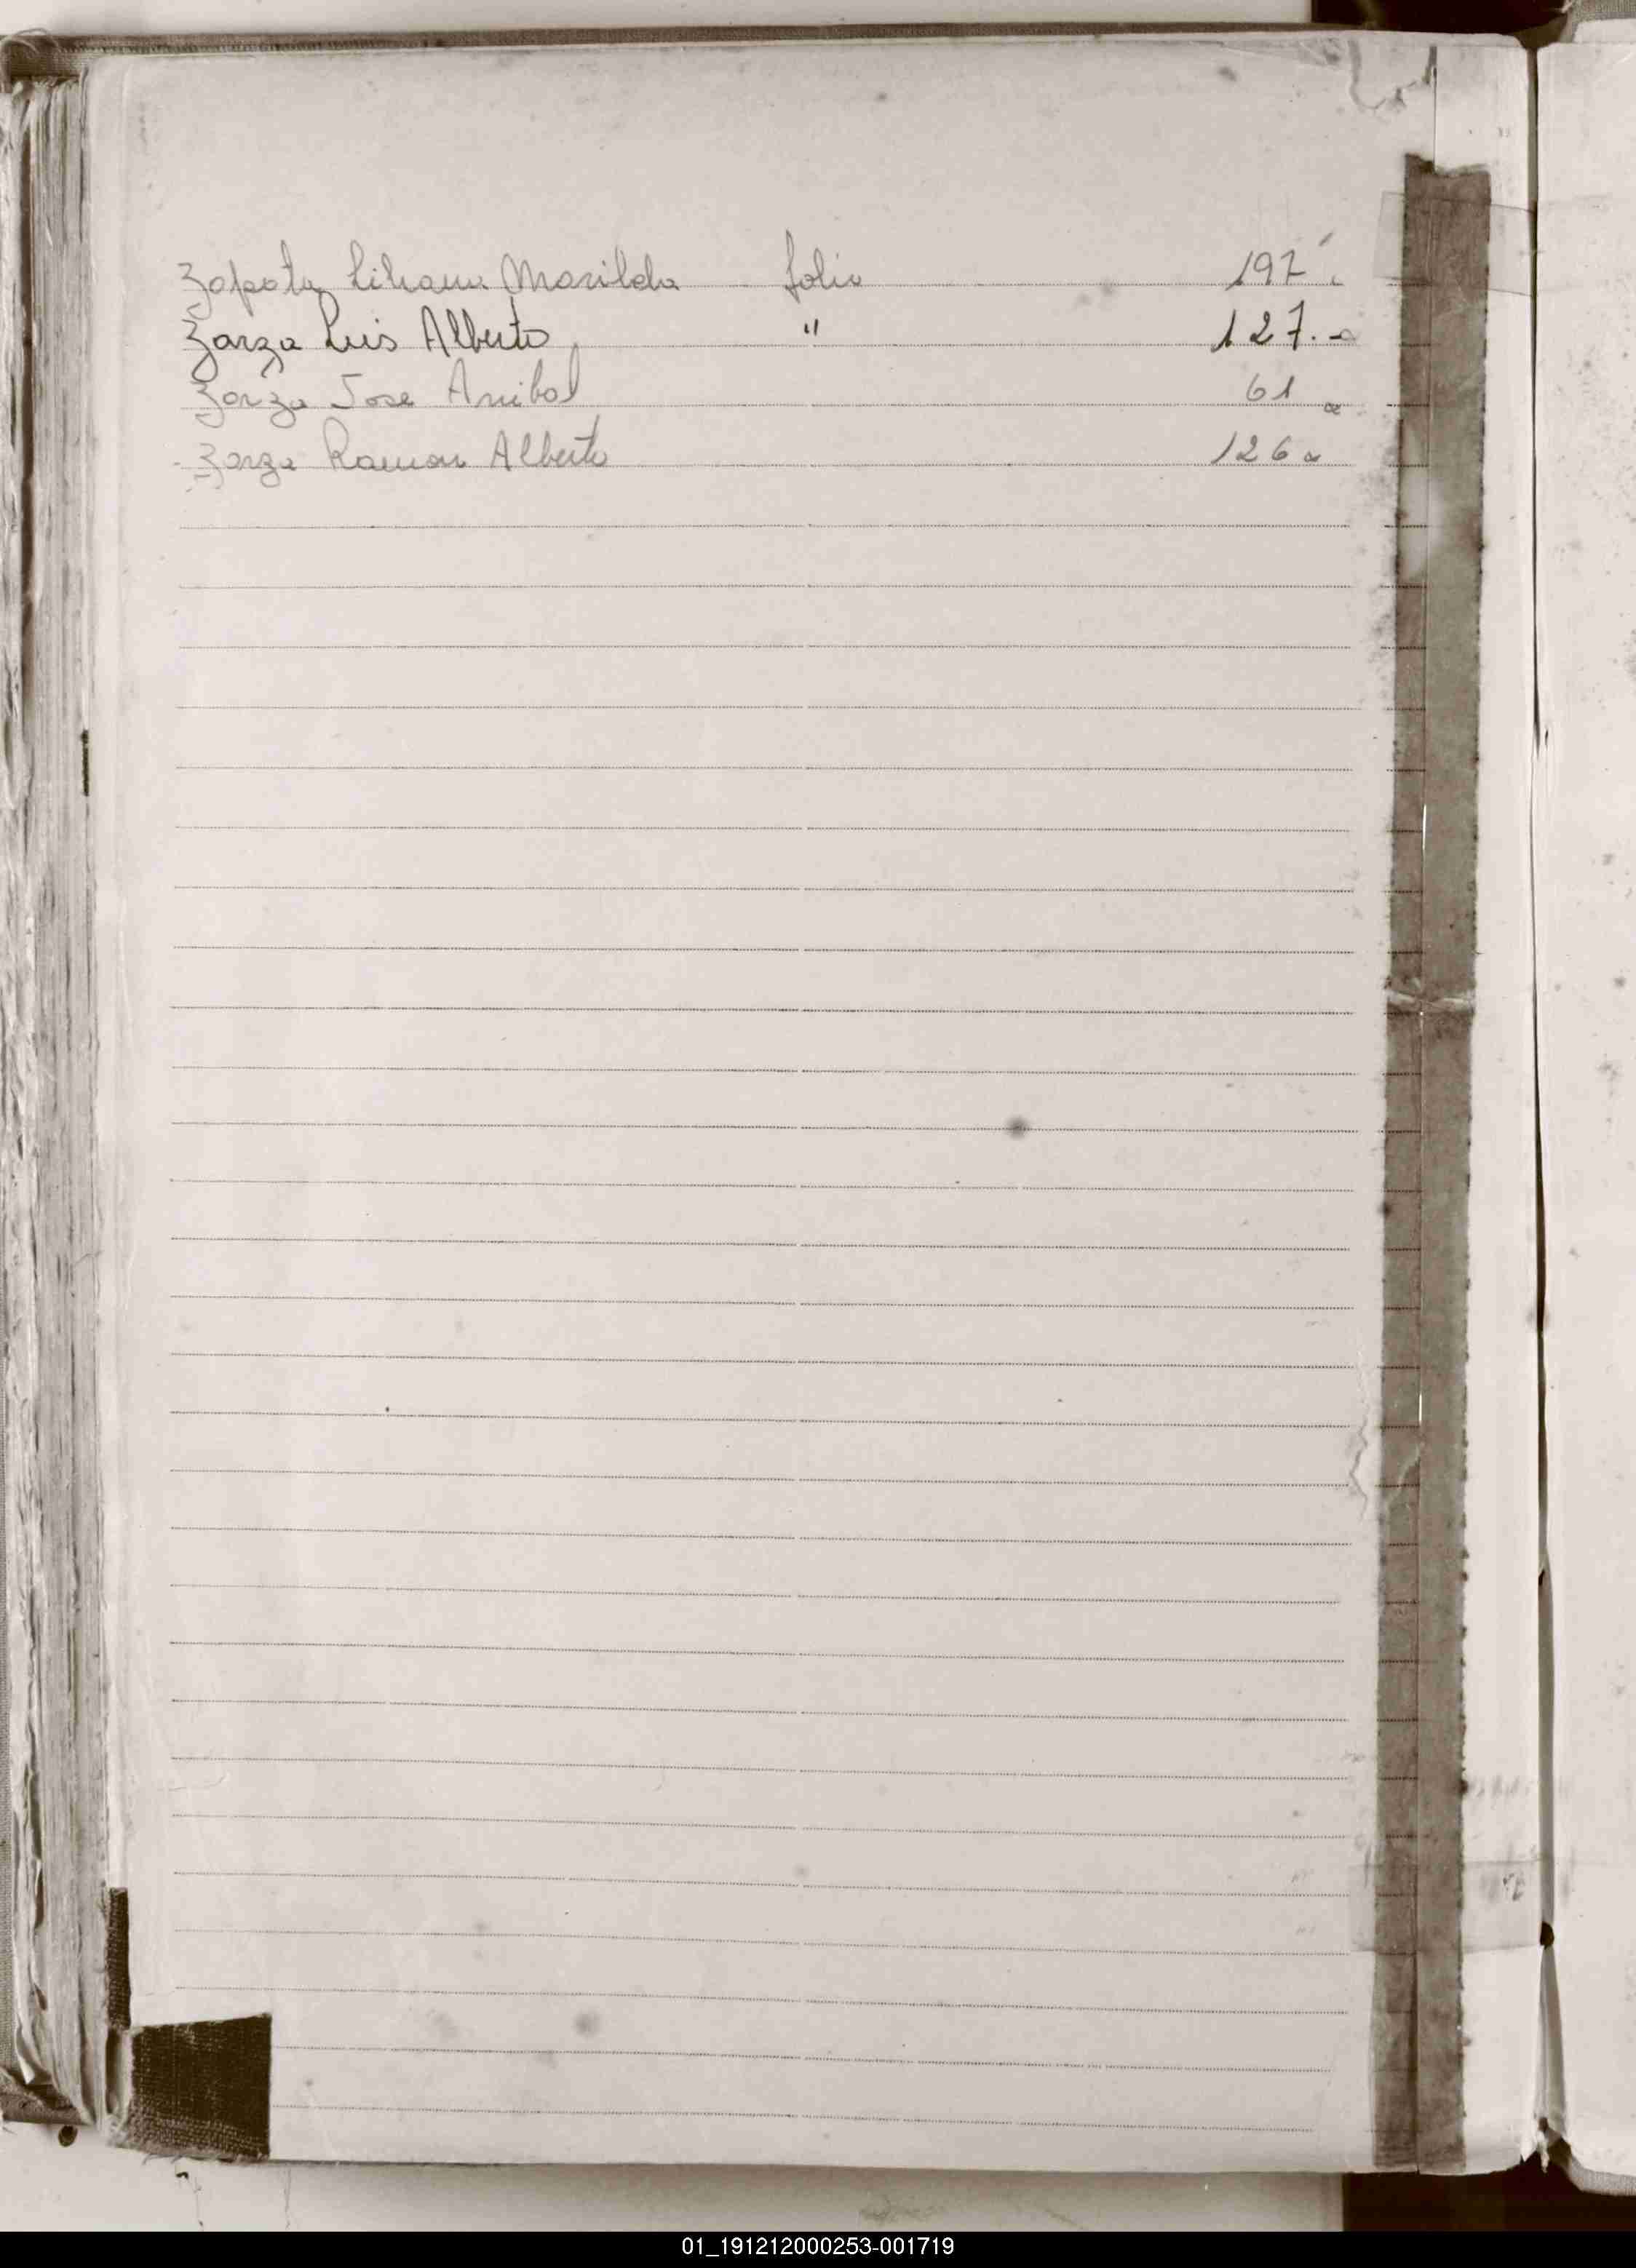 Zapata Liliana Marilda folio 197
Zarza Luis Alberto " 127.
Zarza Jose Anibal 61
Zarza Ramon Alberto 126
01_191212000253-001719